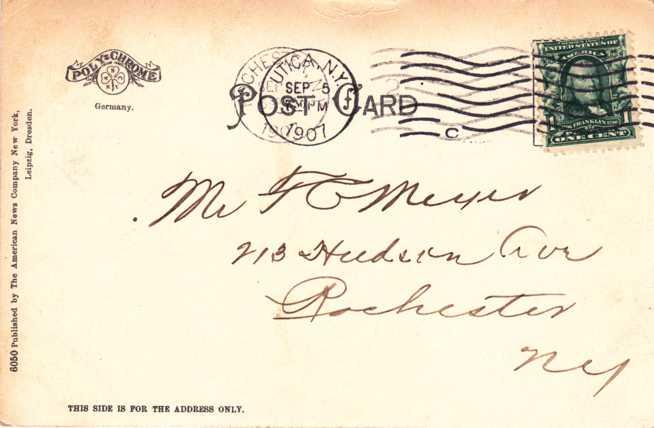 POLY-CHROME
Germany.
ROCHESTER
UTICA, N.Y.
SEP 5
PM
1907
POST CARD
C
UNITED STATES OF
FRANKLIN
ONE CENT
Mr F C Meyer
213 Hudson Ave
Rochester
NY
6050 Published by The American News Company New York,
Leipzig, Dresden.
THIS SIDE IS FOR THE ADDRESS ONLY.